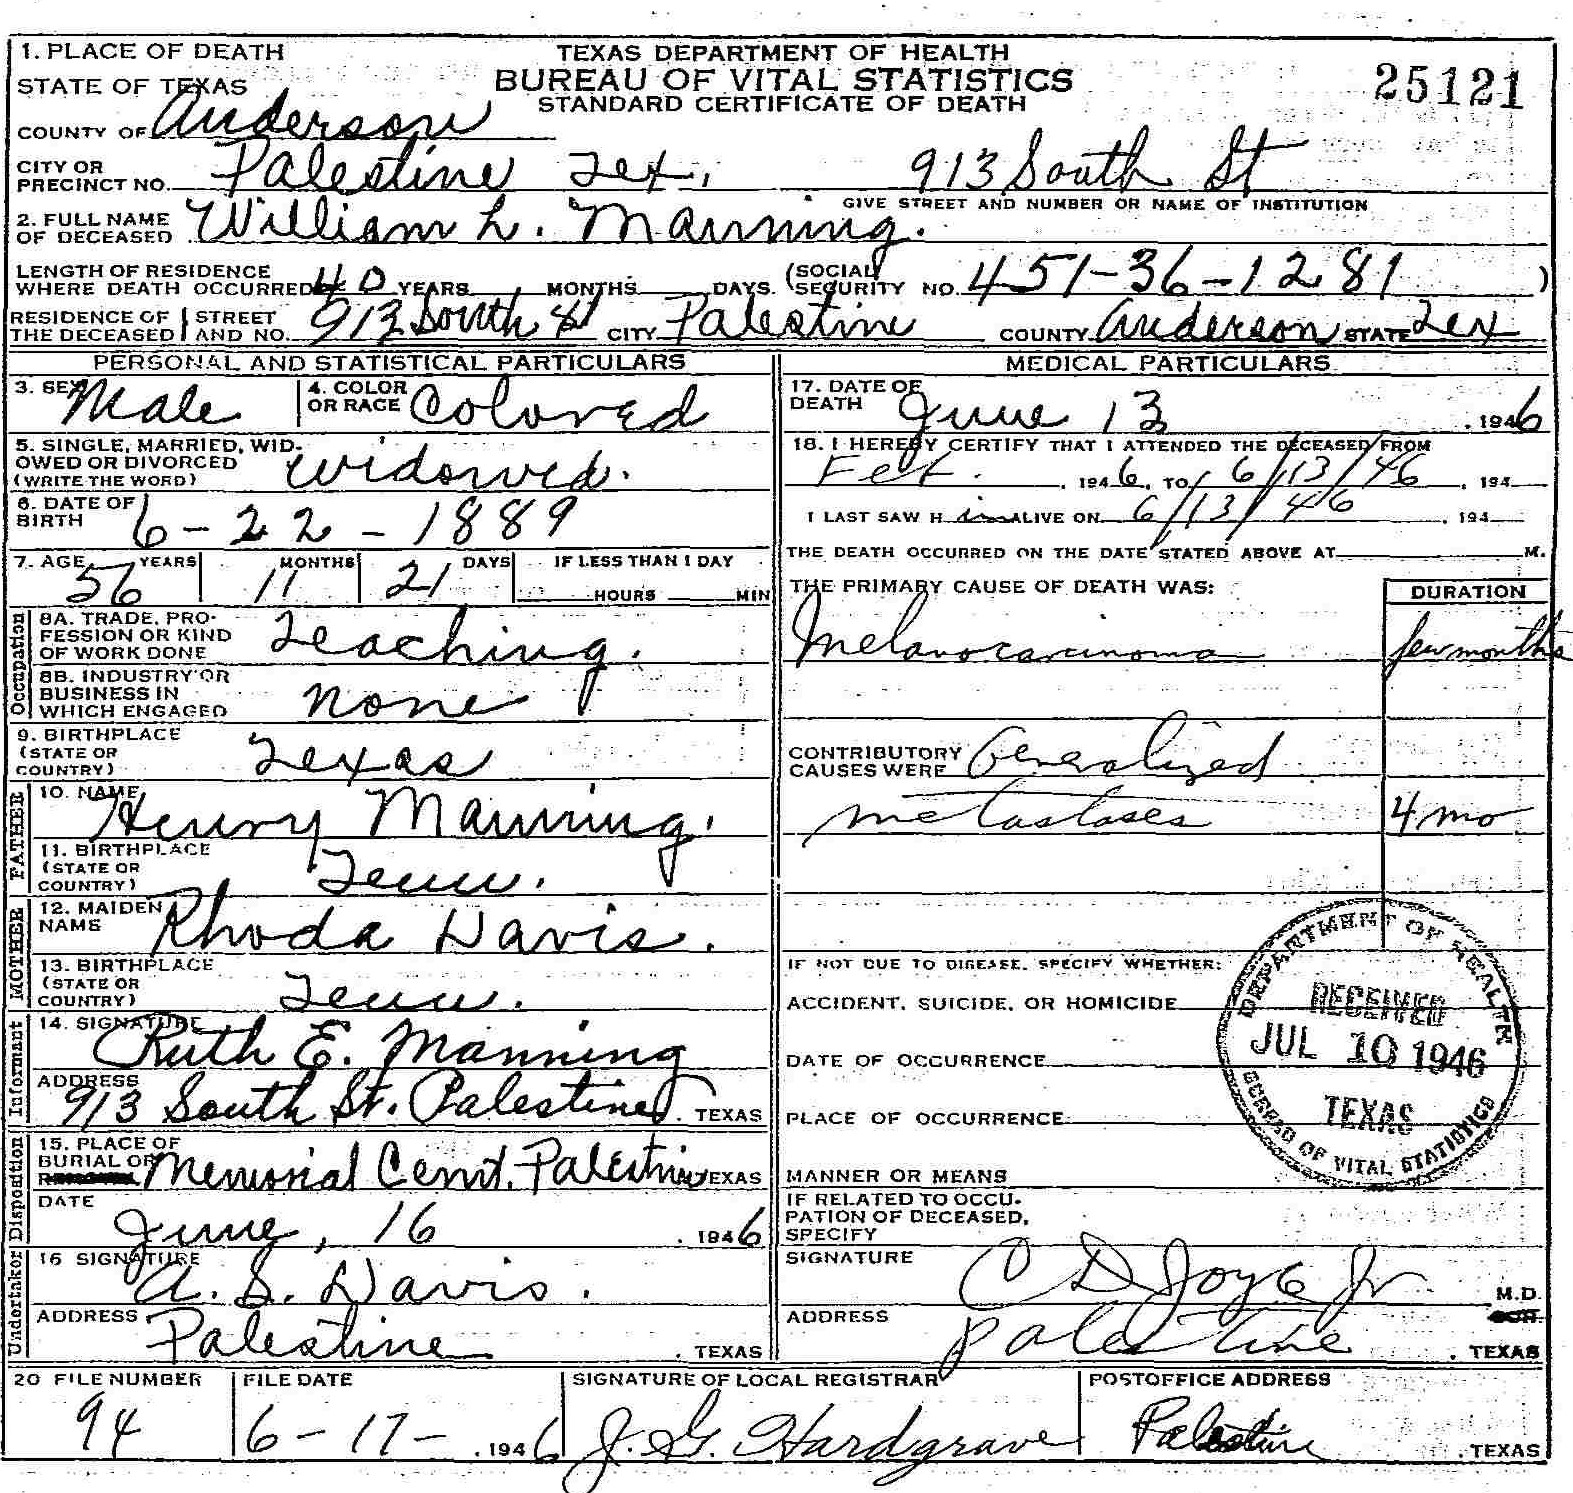 1. PLACE OF DEATH
STATE OF TEXAS
COUNTY OF Anderson
TEXAS DEPARTMENT OF HEALTH
BUREAU OF VITAL STATISTICS
STANDARD CERTIFICATE OF DEATH
25121
CITY OR PRECINCT NO. Palestine Tex, 913 South St
GIVE STREET AND NUMBER OR NAME OF INSTITUTION
2. FULL NAME OF DECEASED William L. Manning.
LENGTH OF RESIDENCE WHERE DEATH OCCURRED 40 YEARS MONTHS DAYS. (SOCIAL SECURITY NO. 451-36-1281)
RESIDENCE OF THE DECEASED STREET AND NO. 913 South St CITY Palestine COUNTY Anderson STATE Tex
PERSONAL AND STATISTICAL PARTICULARS
3. SEX Male 4. COLOR OR RACE Colored
5. SINGLE, MARRIED, WIDOWED OR DIVORCED (WRITE THE WORD) widowed.
6. DATE OF BIRTH 6-22-1889
7. AGE 56 YEARS 11 MONTHS 21 DAYS IF LESS THAN 1 DAY HOURS MIN
Occupation
8A. TRADE, PROFESSION OR KIND OF WORK DONE Teaching.
8B. INDUSTRY OR BUSINESS IN WHICH ENGAGED none
9. BIRTHPLACE (STATE OR COUNTRY) Texas
FATHER
10. NAME Henry Manning.
11. BIRTHPLACE (STATE OR COUNTRY) Tenn.
MOTHER
12. MAIDEN NAME Rhoda Davis.
13. BIRTHPLACE (STATE OR COUNTRY) Tenn.
Informant
14. SIGNATURE Ruth E. Manning
ADDRESS 913 South St. Palestine. TEXAS
Disposition
15. PLACE OF BURIAL OR Memorial Cemt. Palestine TEXAS
DATE June, 16 . 1946
Undertaker
16 SIGNATURE A. S. Davis.
ADDRESS Palestine . TEXAS
MEDICAL PARTICULARS
17. DATE OF DEATH June 13 . 1946
18. I HEREBY CERTIFY THAT I ATTENDED THE DECEASED FROM
Feb. . 1946, TO 6/13/46 . 194
I LAST SAW H im ALIVE ON 6/13/46 . 194
THE DEATH OCCURRED ON THE DATE STATED ABOVE AT M.
THE PRIMARY CAUSE OF DEATH WAS: DURATION
Melanocarcinoma few months
CONTRIBUTORY CAUSES WERE Generalized
metastases 4 mo
IF NOT DUE TO DISEASE, SPECIFY WHETHER:
ACCIDENT, SUICIDE, OR HOMICIDE
DATE OF OCCURRENCE
PLACE OF OCCURRENCE
MANNER OR MEANS
IF RELATED TO OCCUPATION OF DECEASED, SPECIFY
DEPARTMENT OF HEALTH
RECEIVED
JUL 10 1946
TEXAS
BUREAU OF VITAL STATISTICS
SIGNATURE C D Joyce Jr M.D.
ADDRESS Palestine . TEXAS
20 FILE NUMBER 94
FILE DATE 6-17- . 1946
SIGNATURE OF LOCAL REGISTRAR J. G. Hardgrave
POSTOFFICE ADDRESS Palestine . TEXAS